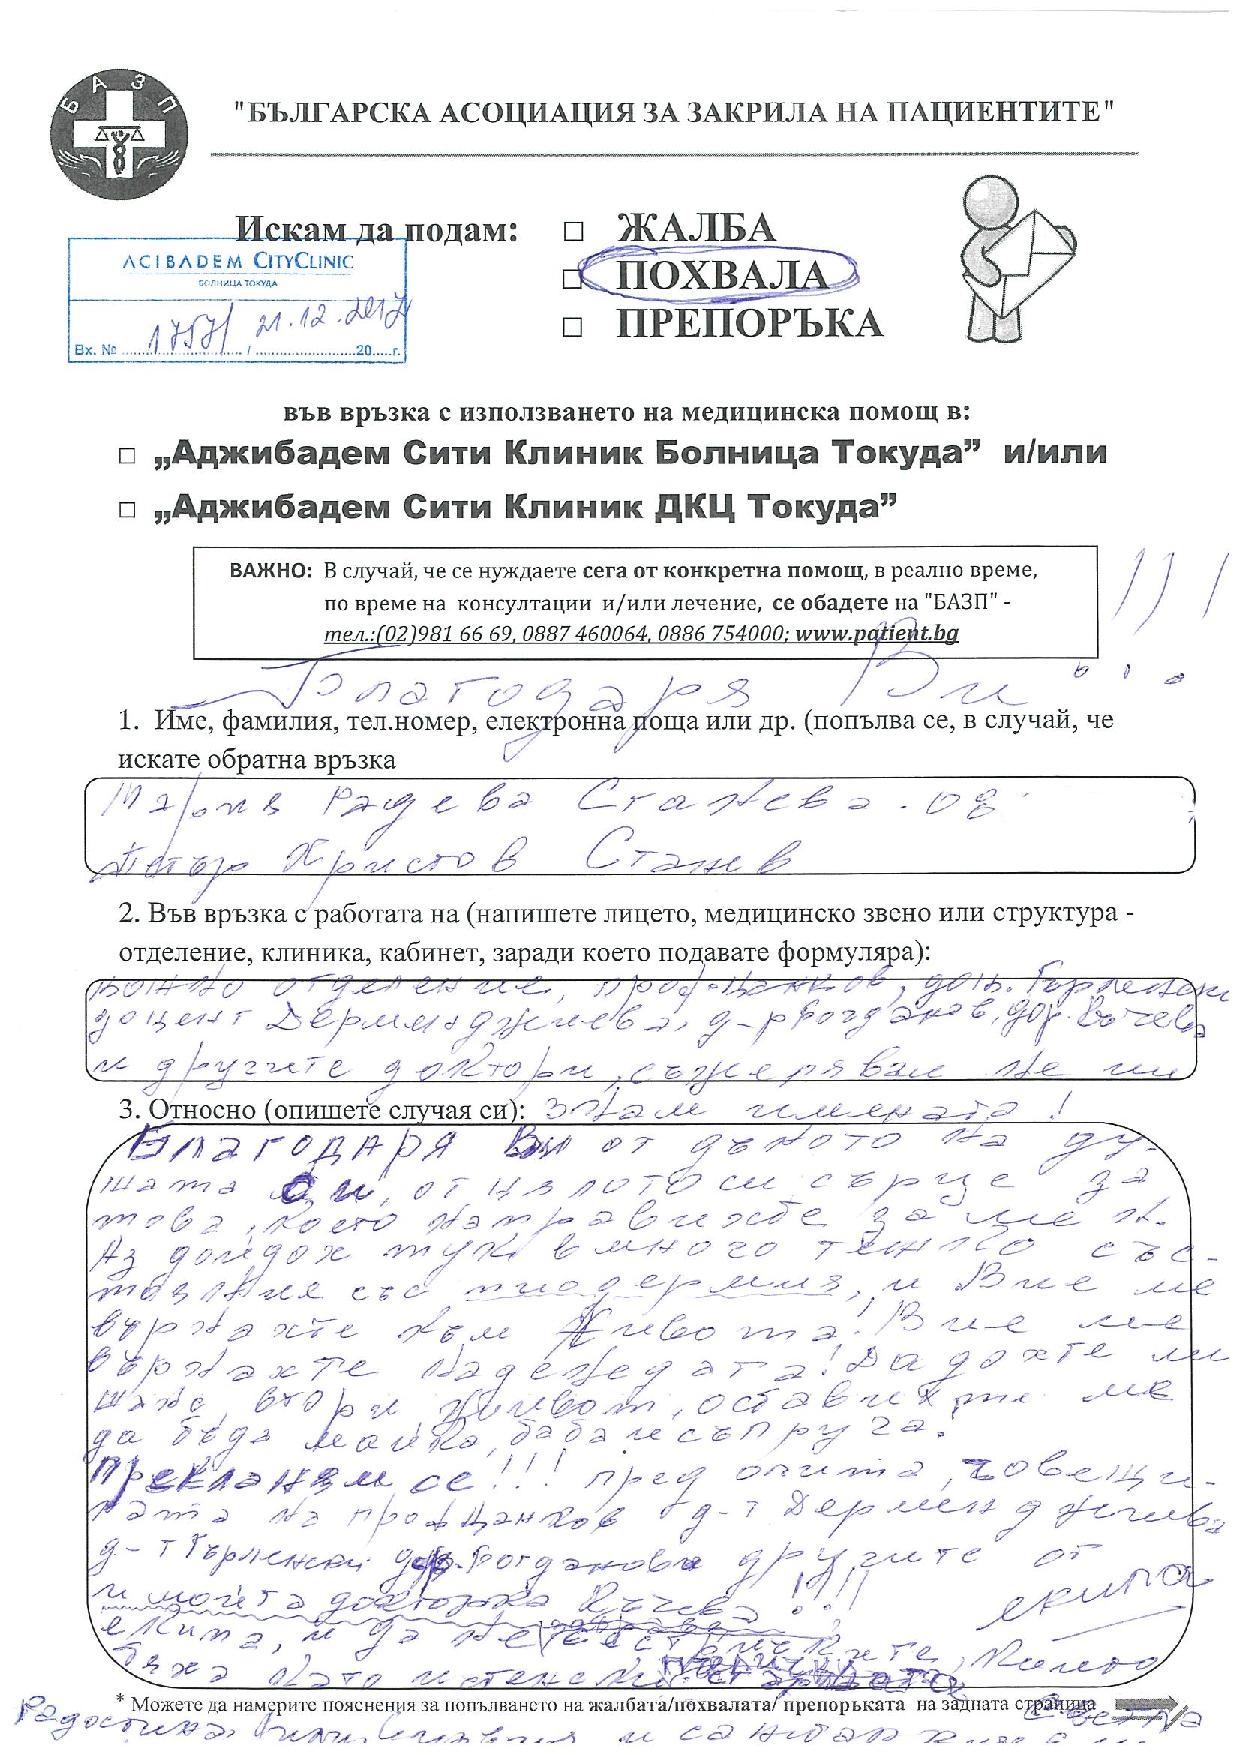 БАЗП
"БЪЛГАРСКА АСОЦИАЦИЯ ЗА ЗАКРИЛА НА ПАЦИЕНТИТЕ"
Искам да подам:
□ ЖАЛБА
□ ПОХВАЛА
□ ПРЕПОРЪКА
ACIBADEM CITYCLINIC
БОЛНИЦА ТОКУДА
Вх. № 1757/ 21.12.2017 / 20.....г.
във връзка с използването на медицинска помощ в:
□ „Аджибадем Сити Клиник Болница Токуда” и/или
□ „Аджибадем Сити Клиник ДКЦ Токуда”
ВАЖНО: В случай, че се нуждаете сега от конкретна помощ, в реално време,
по време на консултации и/или лечение, се обадете на "БАЗП" -
тел.:(02)981 66 69, 0887 460064, 0886 754000; www.patient.bg
Благодаря Ви !!!
1. Име, фамилия, тел.номер, електронна поща или др. (попълва се, в случай, че
искате обратна връзка
Радева Станева
Петър Христов Станев
2. Във връзка с работата на (напишете лицето, медицинско звено или структура -
отделение, клиника, кабинет, заради което подавате формуляра):
Кожно отделение, проф. Цанков, доц. Гърленски
доцент Дерменджиева, д-р Богданов, Къчева
и другите доктори, съжелявам не им
3. Относно (опишете случая си): знам имената!
Благодаря Ви от дъното на ду-
шата си, от цялото си сърце за
това, което направихте за мен.
Аз дойдох тук в много тежко със-
тояние със пиодермия, и Вие ме
върнахте към живота! Вие ме
върнахте надеждата! Дадохте ми
шанс, втори живот, оставихте ме
да бъда майка, баба и съпруга.
Прекланям се!!! пред опита, човещи-
ната на проф Цанков д-т Дерменджиева
д-т Гърленски Богданов и другите от екипа
и мойта докторка Къчева!!!
екипа, и да не
бяха като
* Можете да намерите пояснения за попълването на жалбата/похвалата/ препоръката на задната страница
Радостина, и санитарките